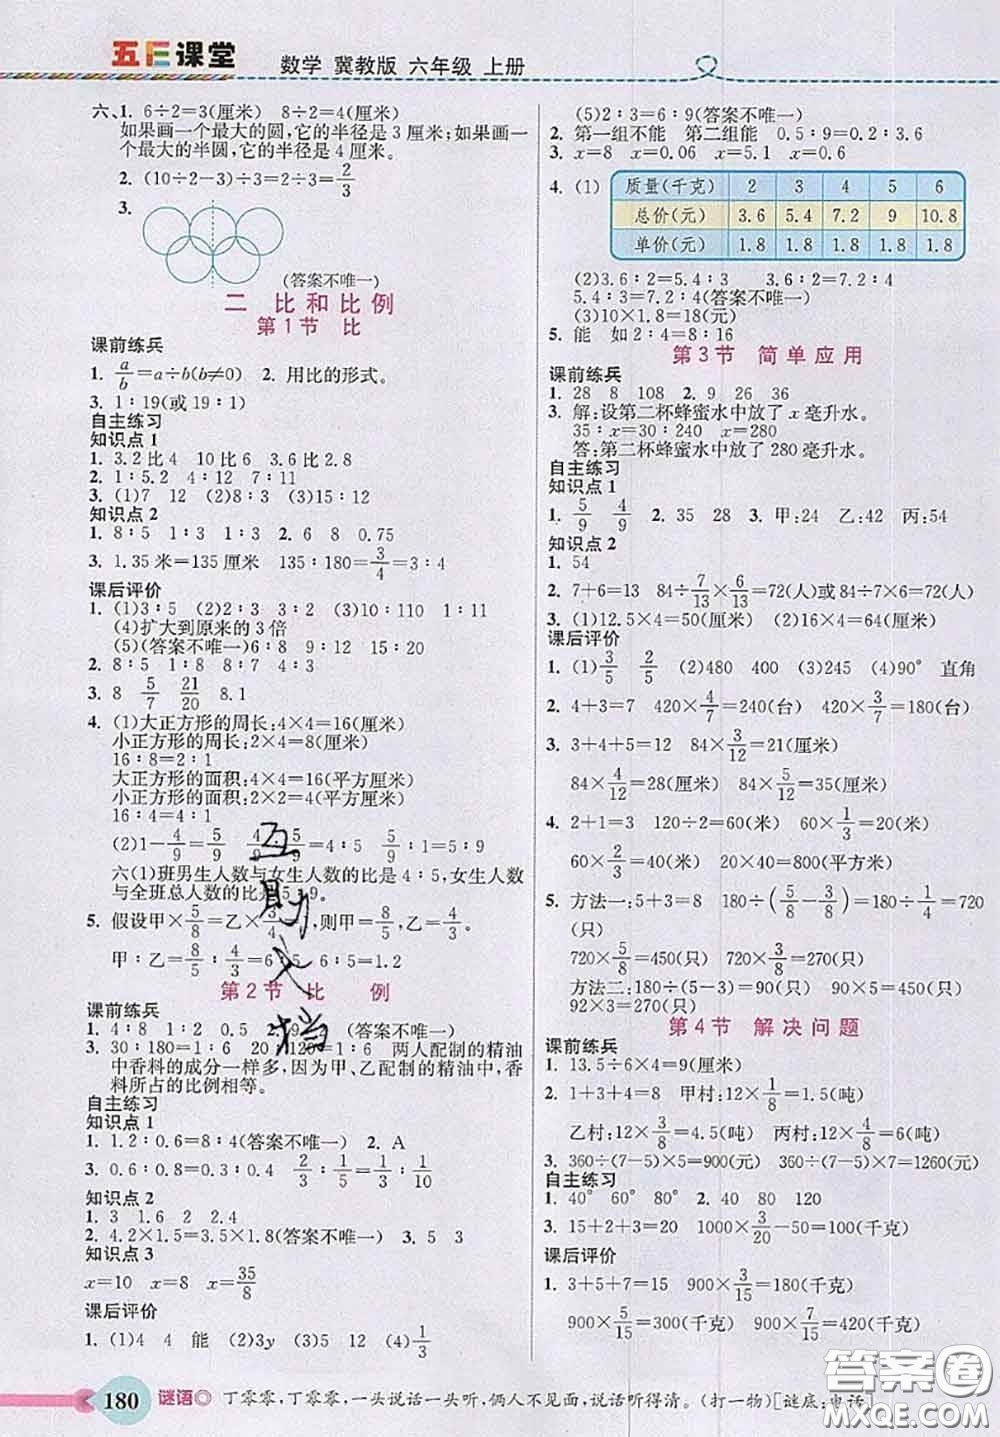 五E课堂
数学 冀教版 六年级 上册
六、1. 6÷2=3(厘米) 8÷2=4(厘米)
如果画一个最大的圆,它的半径是3厘米;如果画一
个最大的半圆,它的半径是4厘米。
2. (10÷2-3)÷3=2÷3=2/3
3.
(答案不唯一)
二 比和比例
第1节 比
课前练兵
1. a/b=a÷b(b≠0) 2. 用比的形式。
3. 1∶19(或19∶1)
自主练习
知识点1
1. 3.2比4 10比6 3.6比2.8
2. 1∶5.2 4∶12 7∶11
3. (1)7 12 (2)8∶3 (3)15
知识点2
1. 8∶5 1∶3 2. 0.6 8 0.75
3. 1.35米=135厘米 135∶180=3/4=3∶4
课后评价
1. (1)3∶5 (2)2∶3 3∶2 (3)10∶110 1∶11
(4)扩大到原来的3倍
(5)(答案不唯一)6∶8 9∶12 15∶20
2. 8∶5 1∶5 4∶1 1∶2
3. 8 5/7 21/20 8.1
4. (1)大正方形的周长:4×4=16(厘米)
小正方形的周长:2×4=8(厘米)
16∶8=2∶1
大正方形的面积:4×4=16(平方厘米)
小正方形的面积:2×2=4(平方厘米)
16∶4=4∶1
(2)1-4/9=5/9 4/9∶5/9=4∶5 5/9∶1=5∶9
六(1)班男生人数与女生人数的比是4∶5,女生人数
与全班总人数的比是5∶9。
5. 假设甲×5/8=乙×3/4=1,则甲=8/5,乙=4/3。
甲∶乙=8/5∶4/3=6∶5 6∶5=1.2
第2节 比 例
课前练兵
1. 4∶8 1∶2 0.5 2. 9 (答案不唯一)
3. 30∶180=1∶6 20∶120=1∶6 两人配制的精油
中香料的成分一样多,因为甲、乙配制的精油中,香
料所占的比例相等。
自主练习
知识点1
1. 1.2∶0.6=8∶4(答案不唯一) 2. A
3. 0.6∶0.8=0.3∶0.4 2/3∶1/5=1/3∶1/10
知识点2
1. 3 1.6 2 2.4
2. 4.2×1.5=3.5×1.8(答案不唯一) 3. 5 3
知识点3
x=10 x=8 x=35/8
课后评价
1. (1)4 4 能 (2)3y (3)5 12 (4)1/3
(5)2∶3=6∶9(答案不唯一)
2. 第一组不能 第二组能 0.5∶9=0.2∶3.6
3. x=8 x=0.06 x=5.1 x=0.6
4. (1) 质量(千克) 2 3 4 5 6
总价(元) 3.6 5.4 7.2 9 10.8
单价(元) 1.8 1.8 1.8 1.8 1.8
(2)3.6∶2=5.4∶3 3.6∶2=7.2∶4
5.4∶3=7.2∶4(答案不唯一)
(3)10×1.8=18(元)
5. 能 如2∶4=8∶16
第3节 简单应用
课前练兵
1. 28 8 108 2. 9 26 36
3. 解:设第二杯蜂蜜水中放了x毫升水。
35∶x=30∶240 x=280
答:第二杯蜂蜜水中放了280毫升水。
自主练习
知识点1
1. 5/9 4/9 2. 35 28 3. 甲:24 乙:42 丙:54
知识点2
1. 54
2. 7+6=13 84÷7/13×6/13=72(人)或84÷7×6=72(人)
3. (1)12.5×4=50(厘米) (2)16×4=64(厘米)
课后评价
1. (1)3/5 2/5 (2)480 400 (3)245 (4)90° 直角
2. 4+3=7 420×4/7=240(台) 420×3/7=180(台)
3. 3+4+5=12 84×3/12=21(厘米)
84×4/12=28(厘米) 84×5/12=35(厘米)
4. 2+1=3 120÷2=60(米) 60×1/3=20(米)
60×2/3=40(米) 40×20=800(平方米)
5. 方法一:5+3=8 180÷(5/8-3/8)=180÷1/4=720
(只)
720×5/8=450(只) 720×3/8=270(只)
方法二:180÷(5-3)=90(只) 90×5=450(只)
92×3=270(只)
第4节 解决问题
课前练兵
1. 13.5÷6×4=9(厘米)
2. 1+3+4=8 甲村:12×1/8=1.5(吨)
乙村:12×3/8=4.5(吨) 丙村:12×4/8=6(吨)
3. 360÷(7-5)×5=900(元) 360÷(7-5)×7=1260(元)
自主练习
1. 40° 60° 80° 2. 40 80 120
3. 15+2+3=20 1000×3/20-50=100(千克)
课后评价
1. 3+5+7=15 900×3/15=180(千克)
900×5/15=300(千克) 900×7/15=420(千克)
互助文档
180 谜语 丁零零,丁零零,一头说话一头听,俩人不见面,说话听得清。(打一物)[谜底:电话]
答案圈
MXQE.COM